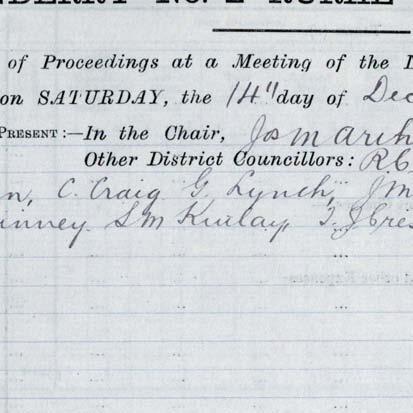 NDERRY No. 2 RURAL
of Proceedings at a Meeting of the
on SATURDAY, the 14" day of Dec
PRESENT:—In the Chair, Jos March
Other District Councillors: R.C.
n, C. Craig G. Lynch, J M
inney S M Kinlay, T. J Cres